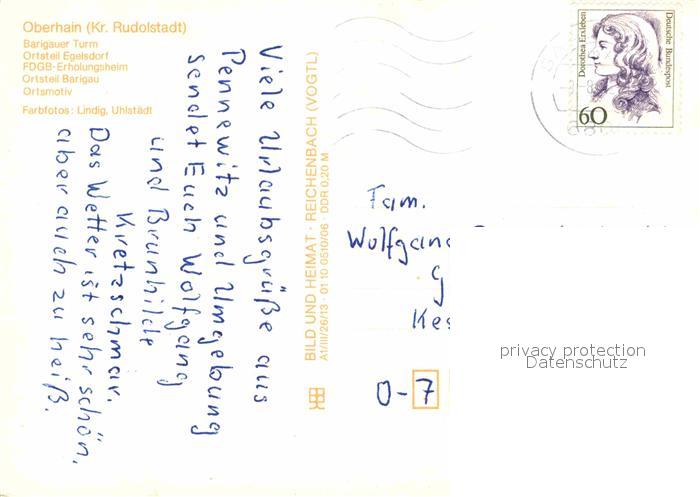 Oberhain (Kr. Rudolstadt)
Barigauer Turm
Ortsteil Egelsdorf
FDGB-Erholungsheim
Ortsteil Barigau
Ortsmotiv
Farbfotos: Lindig, Uhlstädt
Viele Urlaubsgrüße aus
Pennewitz und Umgebung
sendet Euch Wolfgang
und Brunhilde
Kretzschmar.
Das Wetter ist sehr schön,
aber auch zu heiß.
BILD UND HEIMAT · REICHENBACH (VOGTL)
A1/III/26/13 · 01 10 0510/06 · DDR 0,20 M
Dorothea Erxleben
Deutsche Bundespost
60
Fam.
Wolfgang
G
Kes
O-7
privacy protection
Datenschutz